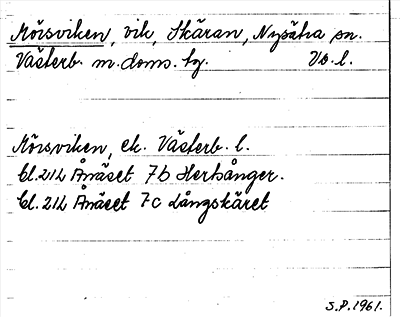 Mörsviken, vik, Skäran, Nysätra sn.
Västerb. m. doms. tg. Vb. l.
Mörsviken, ek. Västerb. l.
bl. 21L Ånäset 7b Hertsånger.
bl. 21L Ånäset 7c Långskäret
S.P. 1961.